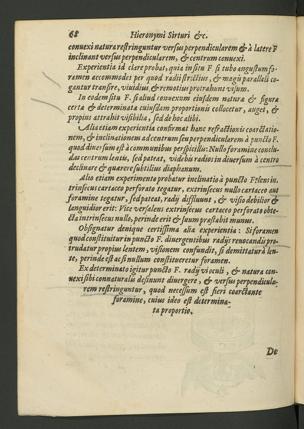 68 Hieronymi Sirturi &c.
conuexi natura restringuntur versus perpendicularem & à latere F
inclinant versus perpendicularem, & centrum conuexi.
Experientia id clare probat, quia in situ F si tubo angustum fo-
ramen accommodes per quod radij strictius, & magis paralleli co-
gantur transire, viuidius & remotius protrahunt visum.
In eodem situ F. si aliud conuexum eiusdem natura & figura
certa & determinata cuiusdam proportionis collocetur, auget, &
propius attrahit visibilia, sed de hoc alibi.
Alia etiam experientia confirmat hanc refractionis coarctatio-
nem, & inclinationem ad centrum seu perpendicularem à puncto F.
quod diuersum est à communibus perspicillis: Nullo foramine conclu-
das centrum lentis, sed pateat, videbis radios in diuersum à centro
declinare & quærere subtilius diaphanum.
Alio etiam experimento probatur inclinatio à puncto F: lens in-
trinsecus cartaceo perforato tegatur, extrinsecus nullo cartaceo aut
foramine tegatur, sed pateat, radij diffluunt, & visio debilior &
languidior erit: Vice versa lens extrinsecus cartaceo perforato obte-
cta intrinsecus nulle, perinde erit & suum præstabit munus.
Obsignatur denique certissima alia experientia: Si foramen
quod constituitur in puncto F. diuergentibus radijs reuocandis pro-
trudatur propius lentem, visionem confundit, si demittatur à len-
te, perinde est ac si nullum constitueretur foramen.
Ex determinato igitur puncto F. radij vi oculi, & natura con-
uexi sibi connaturalis desinunt diuergere, & versus perpendicula-
rem restringuntur, quod necessum est fieri coarctante
foramine, cuius ideo est determina-
ta proportio.
De